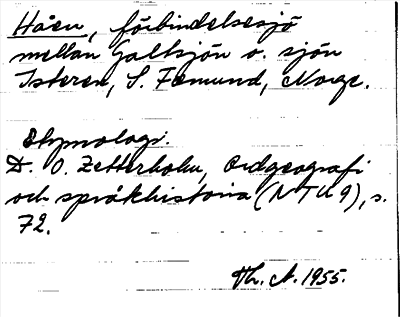 Håen, förbindelsesjö
mellan Galtsjön o. sjön
Isteren, S. Fæmund, Norge.
Etymologi.
D. O. Zetterholm, Ordgeografi
och språkhistoria (NTU 9), s.
72.
Th. A. 1955.